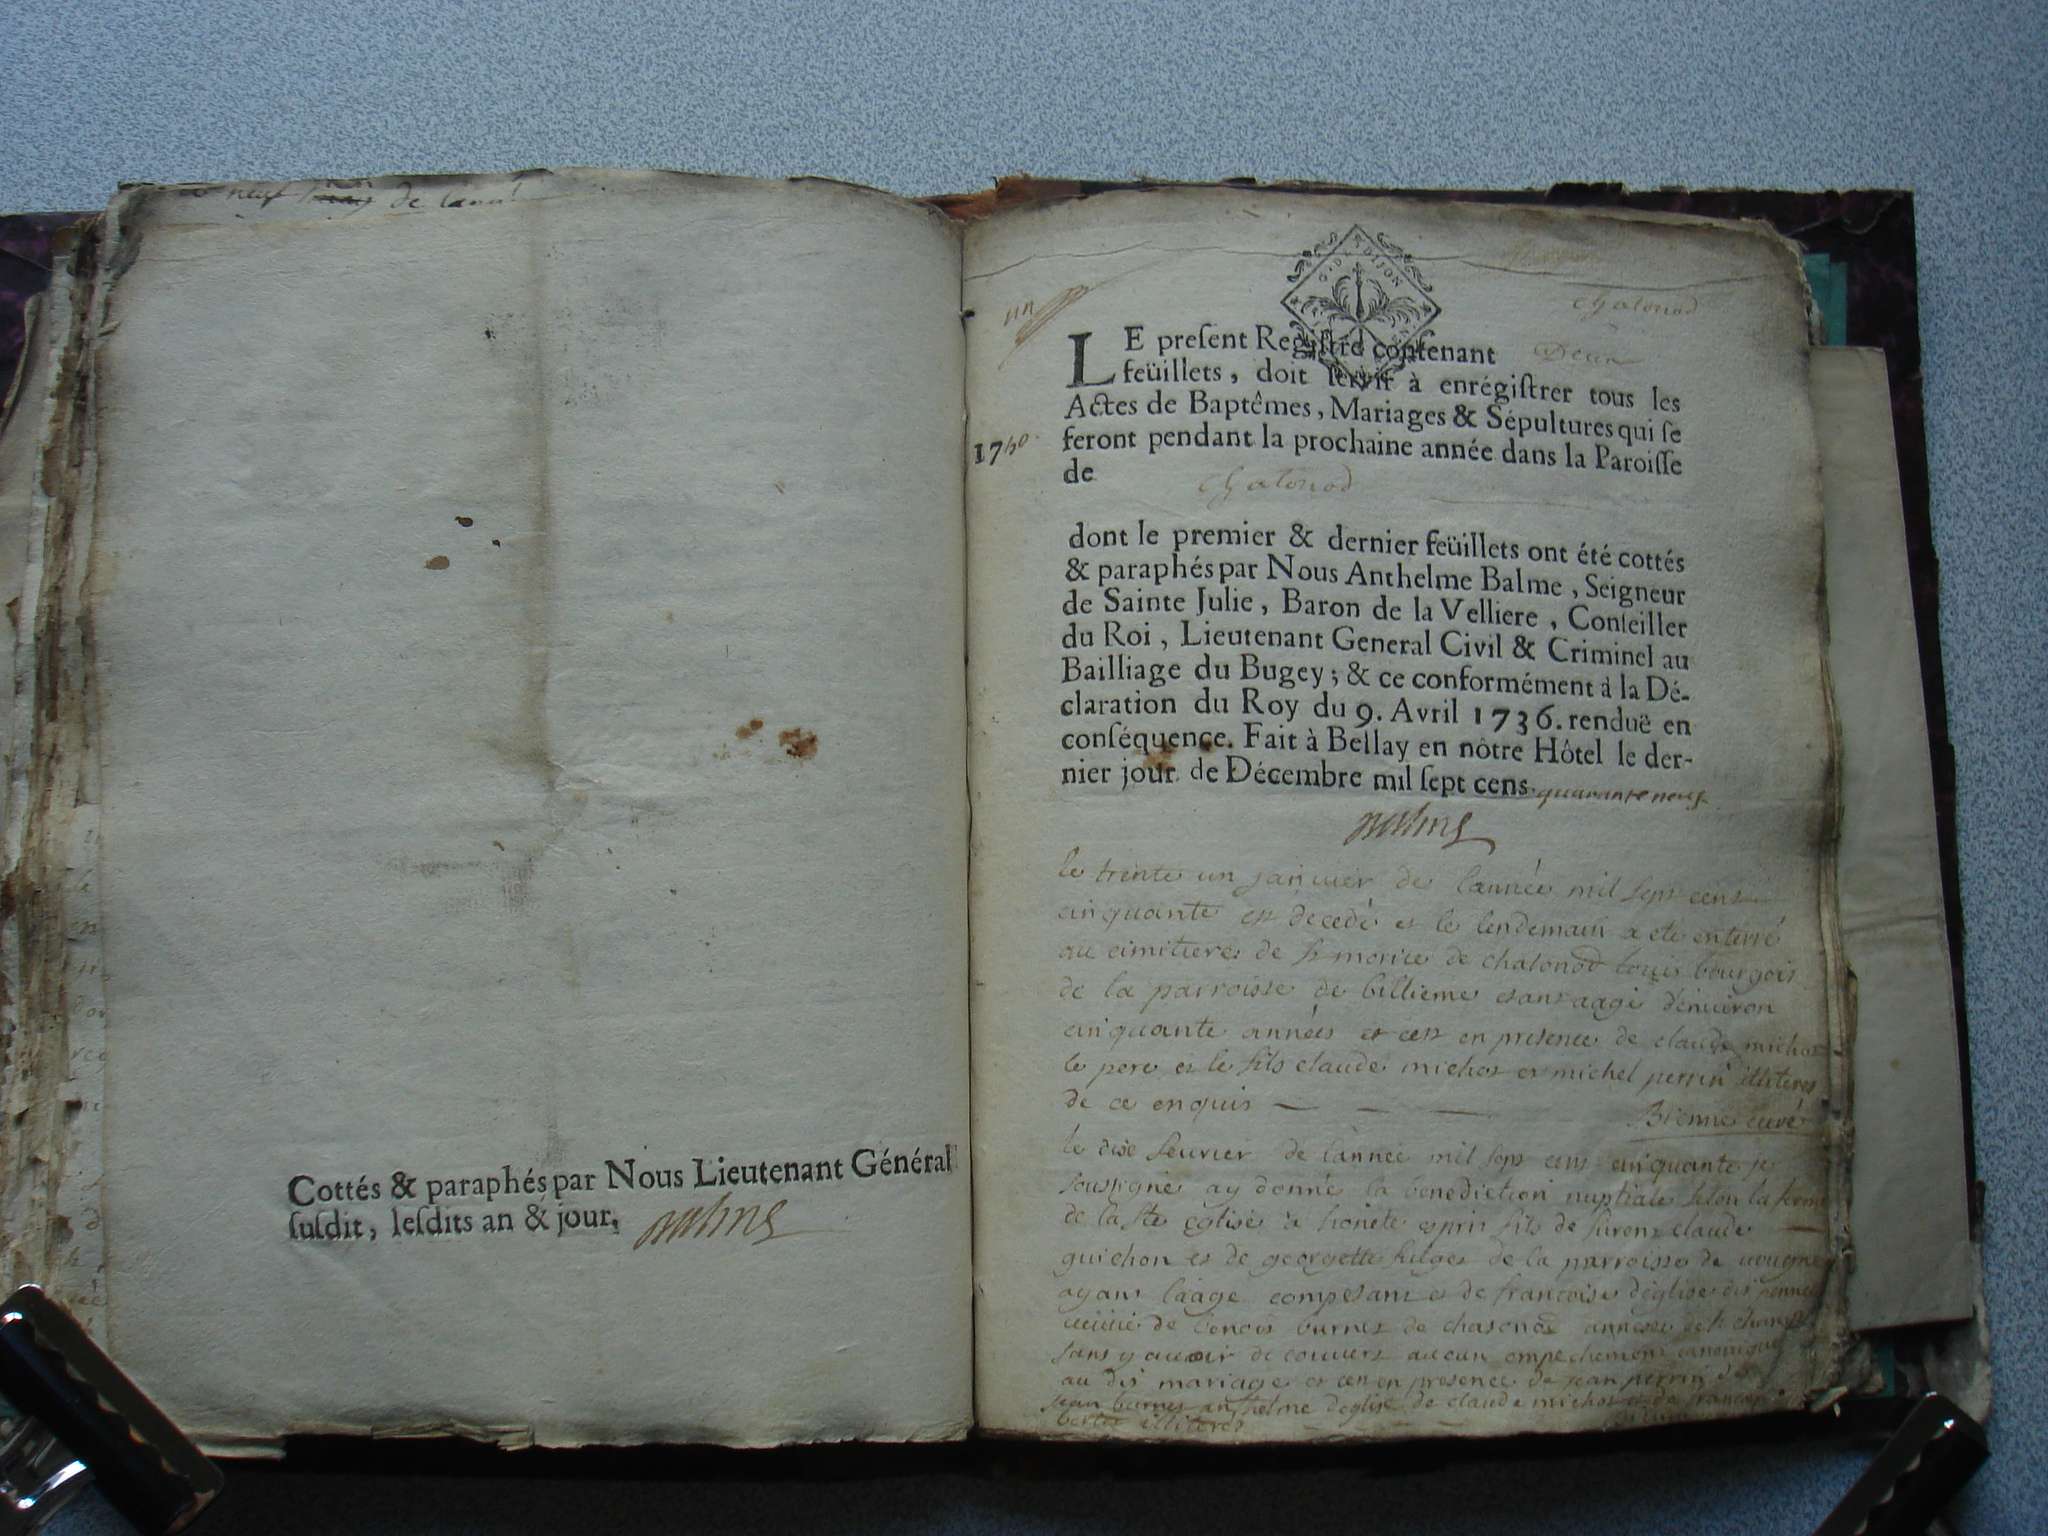 neuf de
Cottés & paraphés par Nous Lieutenant Général
ſuſdit, leſdits an & jour,
Balme
un
G. DE DIJON
Chatonod
LE preſent Regiſtre contenant Deux
feüillets, doit ſervir à enrégiſtrer tous les
Actes de Baptêmes, Mariages & Sépultures qui ſe
1750.
feront pendant la prochaine année dans la Paroiſſe
de Chatonod
dont le premier & dernier feüillets ont été cottés
& paraphés par Nous Anthelme Balme, Seigneur
de Sainte Julie, Baron de la Velliere, Conſeiller
du Roi, Lieutenant General Civil & Criminel au
Bailliage du Bugey; & ce conformément à la Dé-
claration du Roy du 9. Avril 1736. renduë en
conſéquence. Fait à Bellay en nôtre Hôtel le der-
nier jour de Décembre mil ſept cens quarante neuf
Balme
le trente un janvier de lannée mil sept cens
cinquante est decedé et le lendemain a eté enterré
au cimitiere de st morice de chatonod louis bourgois
de la parroisse de billieme estant aagé d'enuiron
cinquante années et cest en presence de claude michot
le pere et le fils claude michot et michel perrin illiteres
de ce enquis
Brenne curé
le dixe feurier de lannée mil sept cens cinquante je
soussigné ay donné la benediction nuptiale selon la forme
de la ste eglise à honete esprit fils de claude
guichon et de georgette de la parroisse de
ayant laage competant et de francoise deglise
de benoit burnet de chatonod annexe de st
sans y auoir decouuert aucun empechement canonique
au dit mariage et cest en presence de jean perrin de
jean burnet anthelme deglise de claude michot et de francois
illiteres